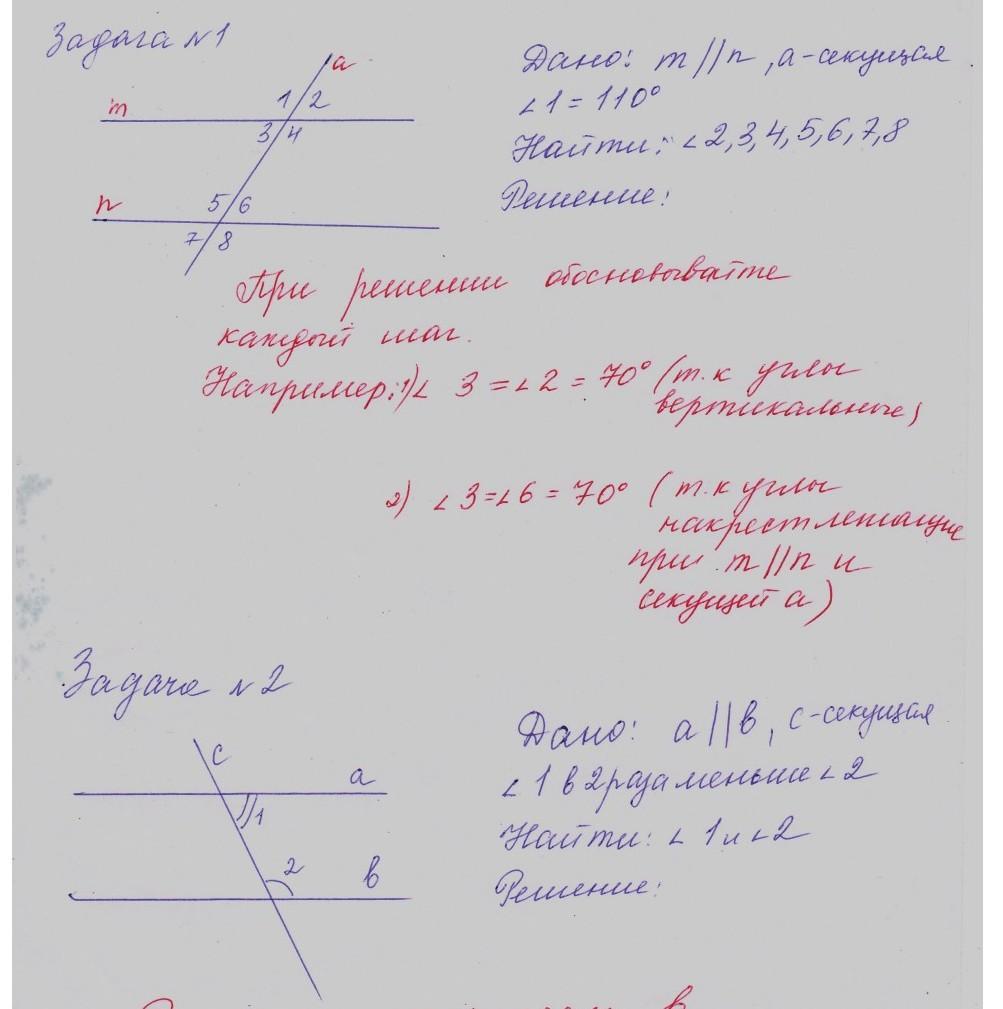 Задача №1
a
1 2
m
3 4
n
5 6
7 8
Дано: m//n, a-секущая
∠1=110°
Найти: ∠2,3,4,5,6,7,8
Решение:
При решении обосновывайте
каждый шаг.
Например: 1)∠3=∠2=70° (т.к углы
вертикальные)
2) ∠3=∠6=70° (т.к углы
накрестлежащие
при m//n и
секущей a)
Задача №2
c
a
1
2
b
Дано: a||b, c-секущая
∠1 в 2раза меньше ∠2
Найти: ∠1и∠2
Решение: